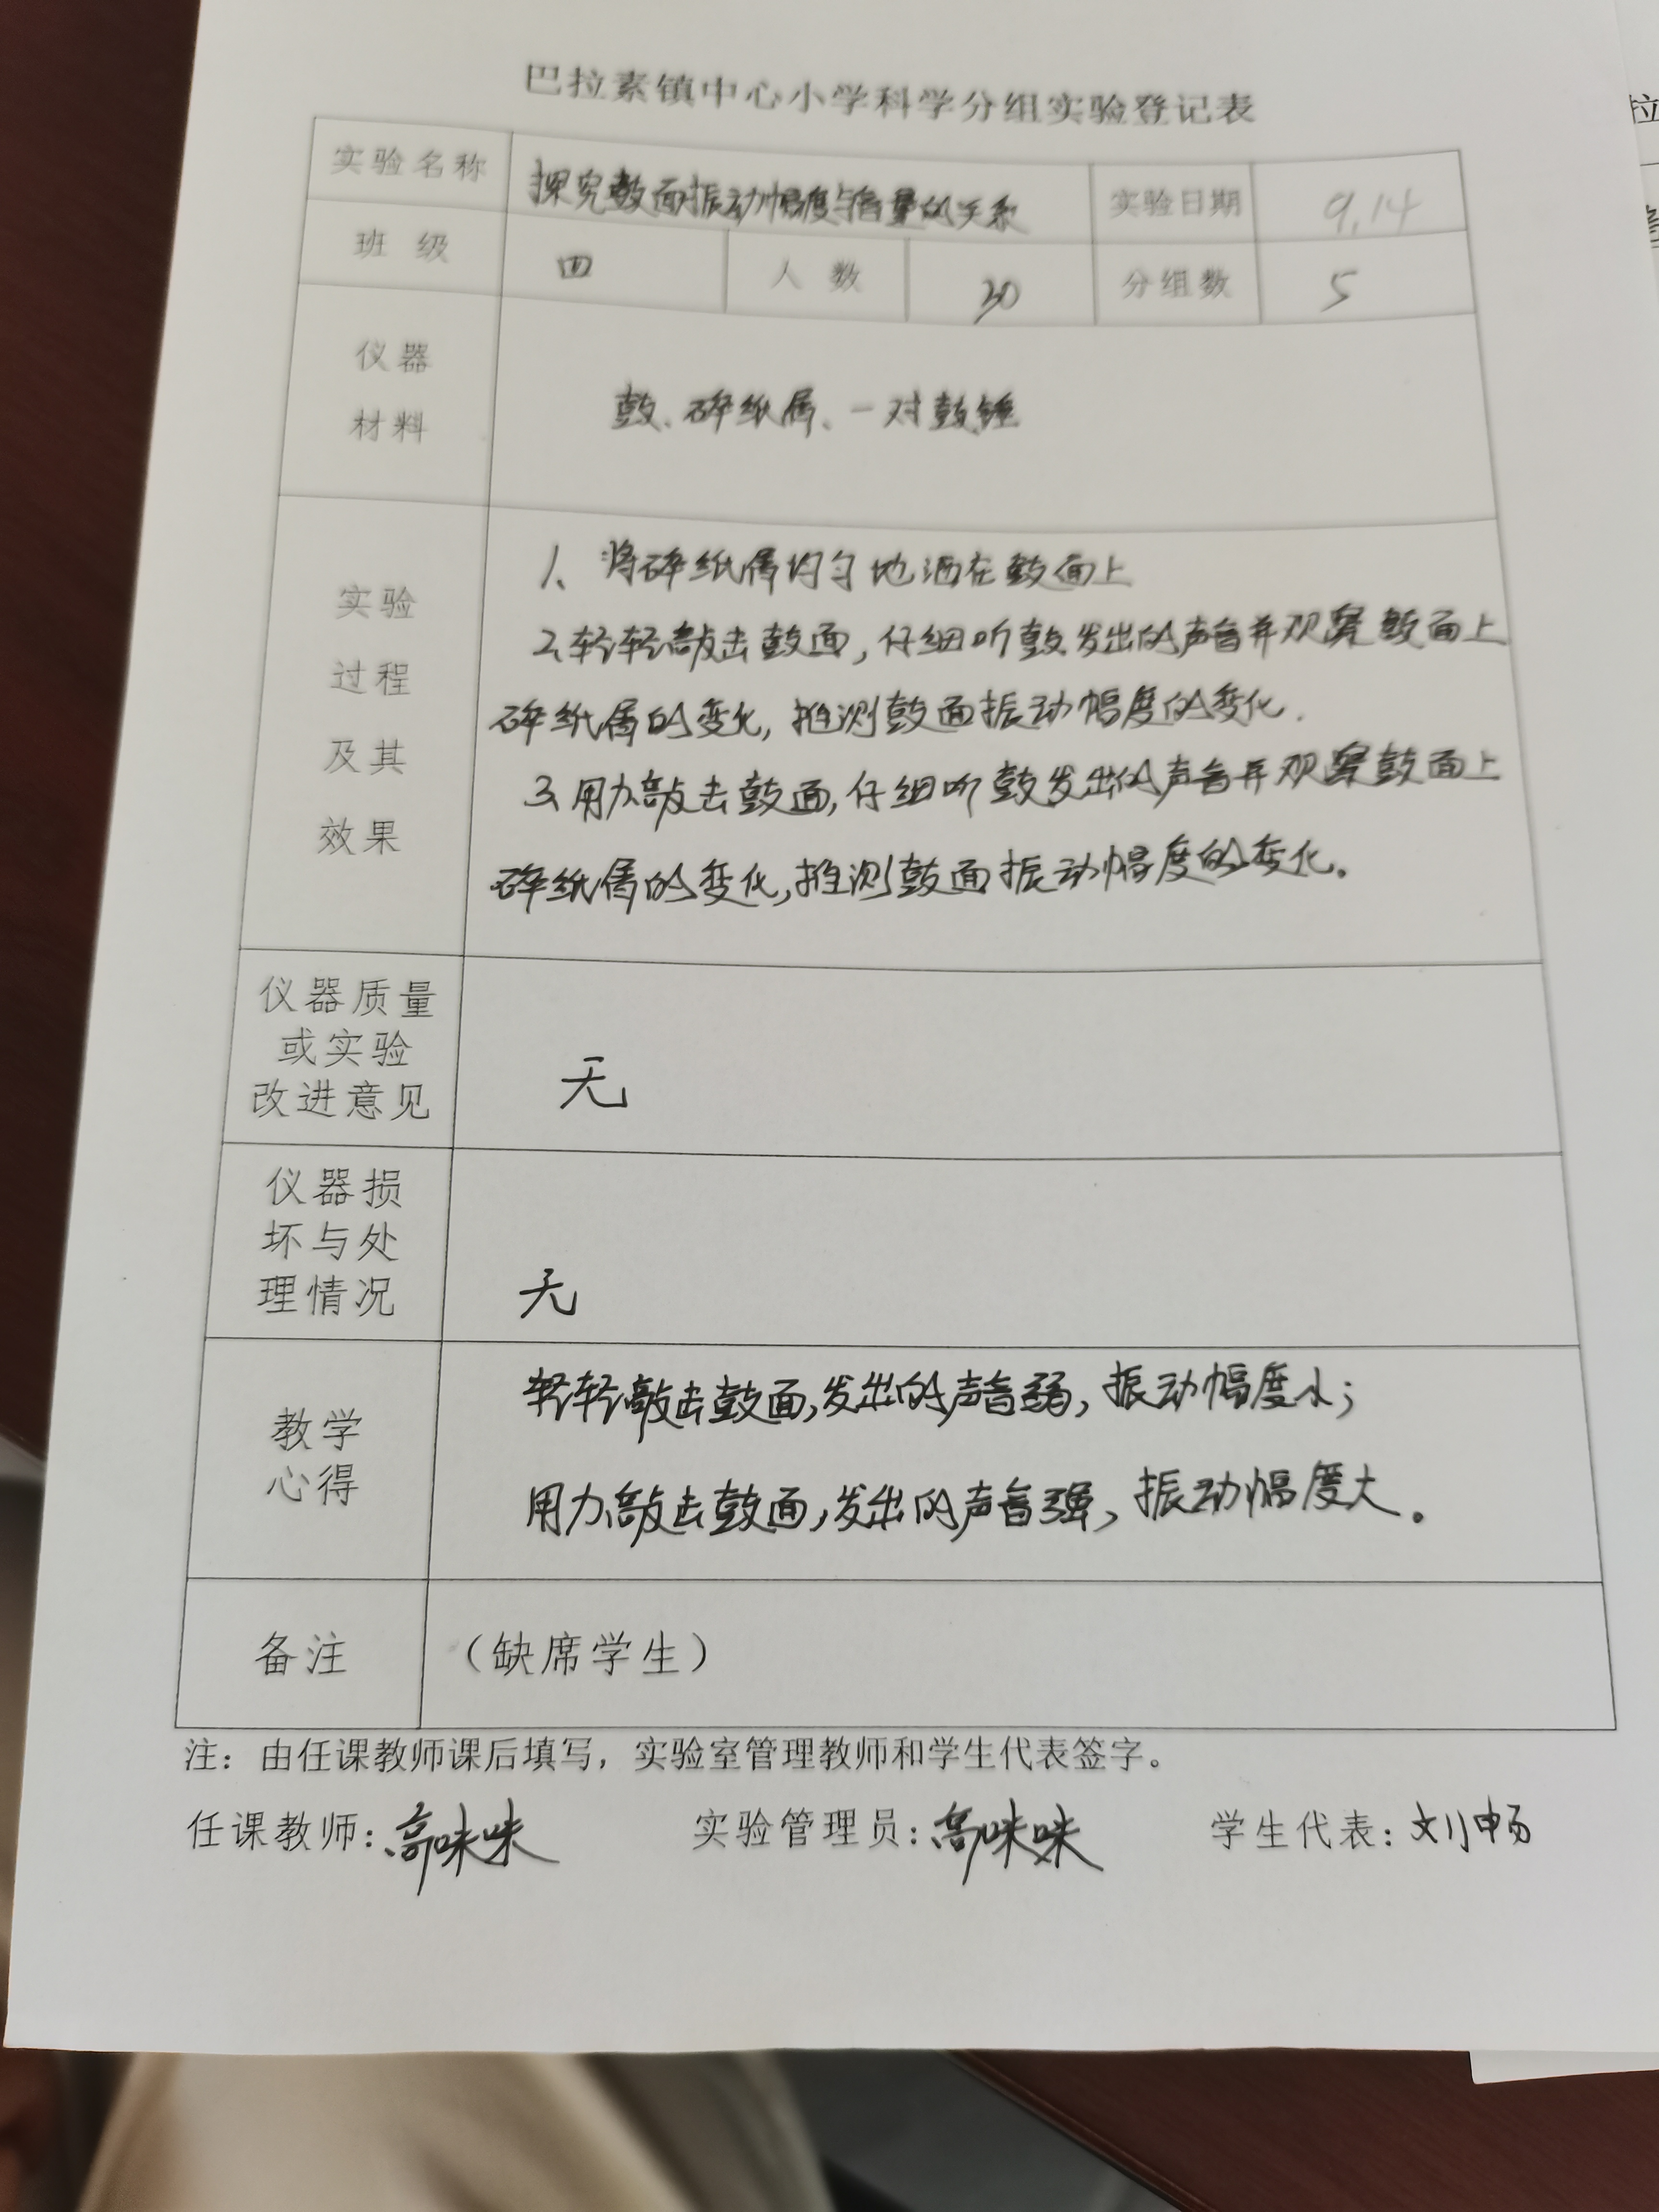 巴拉素镇中心小学科学分组实验登记表
实验名称 探究鼓面振动幅度与音量的关系 实验日期 9.14
班 级 四 人 数 30 分组数 5
仪器
材料
鼓、碎纸屑、一对鼓锤
实验
过程
及其
效果
1、将碎纸屑均匀地洒在鼓面上
2、轻轻敲击鼓面,仔细听鼓发出的声音并观察鼓面上
碎纸屑的变化,推测鼓面振动幅度的变化.
3、用力敲击鼓面,仔细听鼓发出的声音并观察鼓面上
碎纸屑的变化,推测鼓面振动幅度的变化。
仪器质量
或实验
改进意见
无
仪器损
坏与处
理情况
无
教学
心得
轻轻敲击鼓面,发出的声音弱,振动幅度小;
用力敲击鼓面,发出的声音强,振动幅度大。
备注 (缺席学生)
注:由任课教师课后填写,实验室管理教师和学生代表签字。
任课教师: 高咪咪 实验管理员: 高咪咪 学生代表: 刘畅